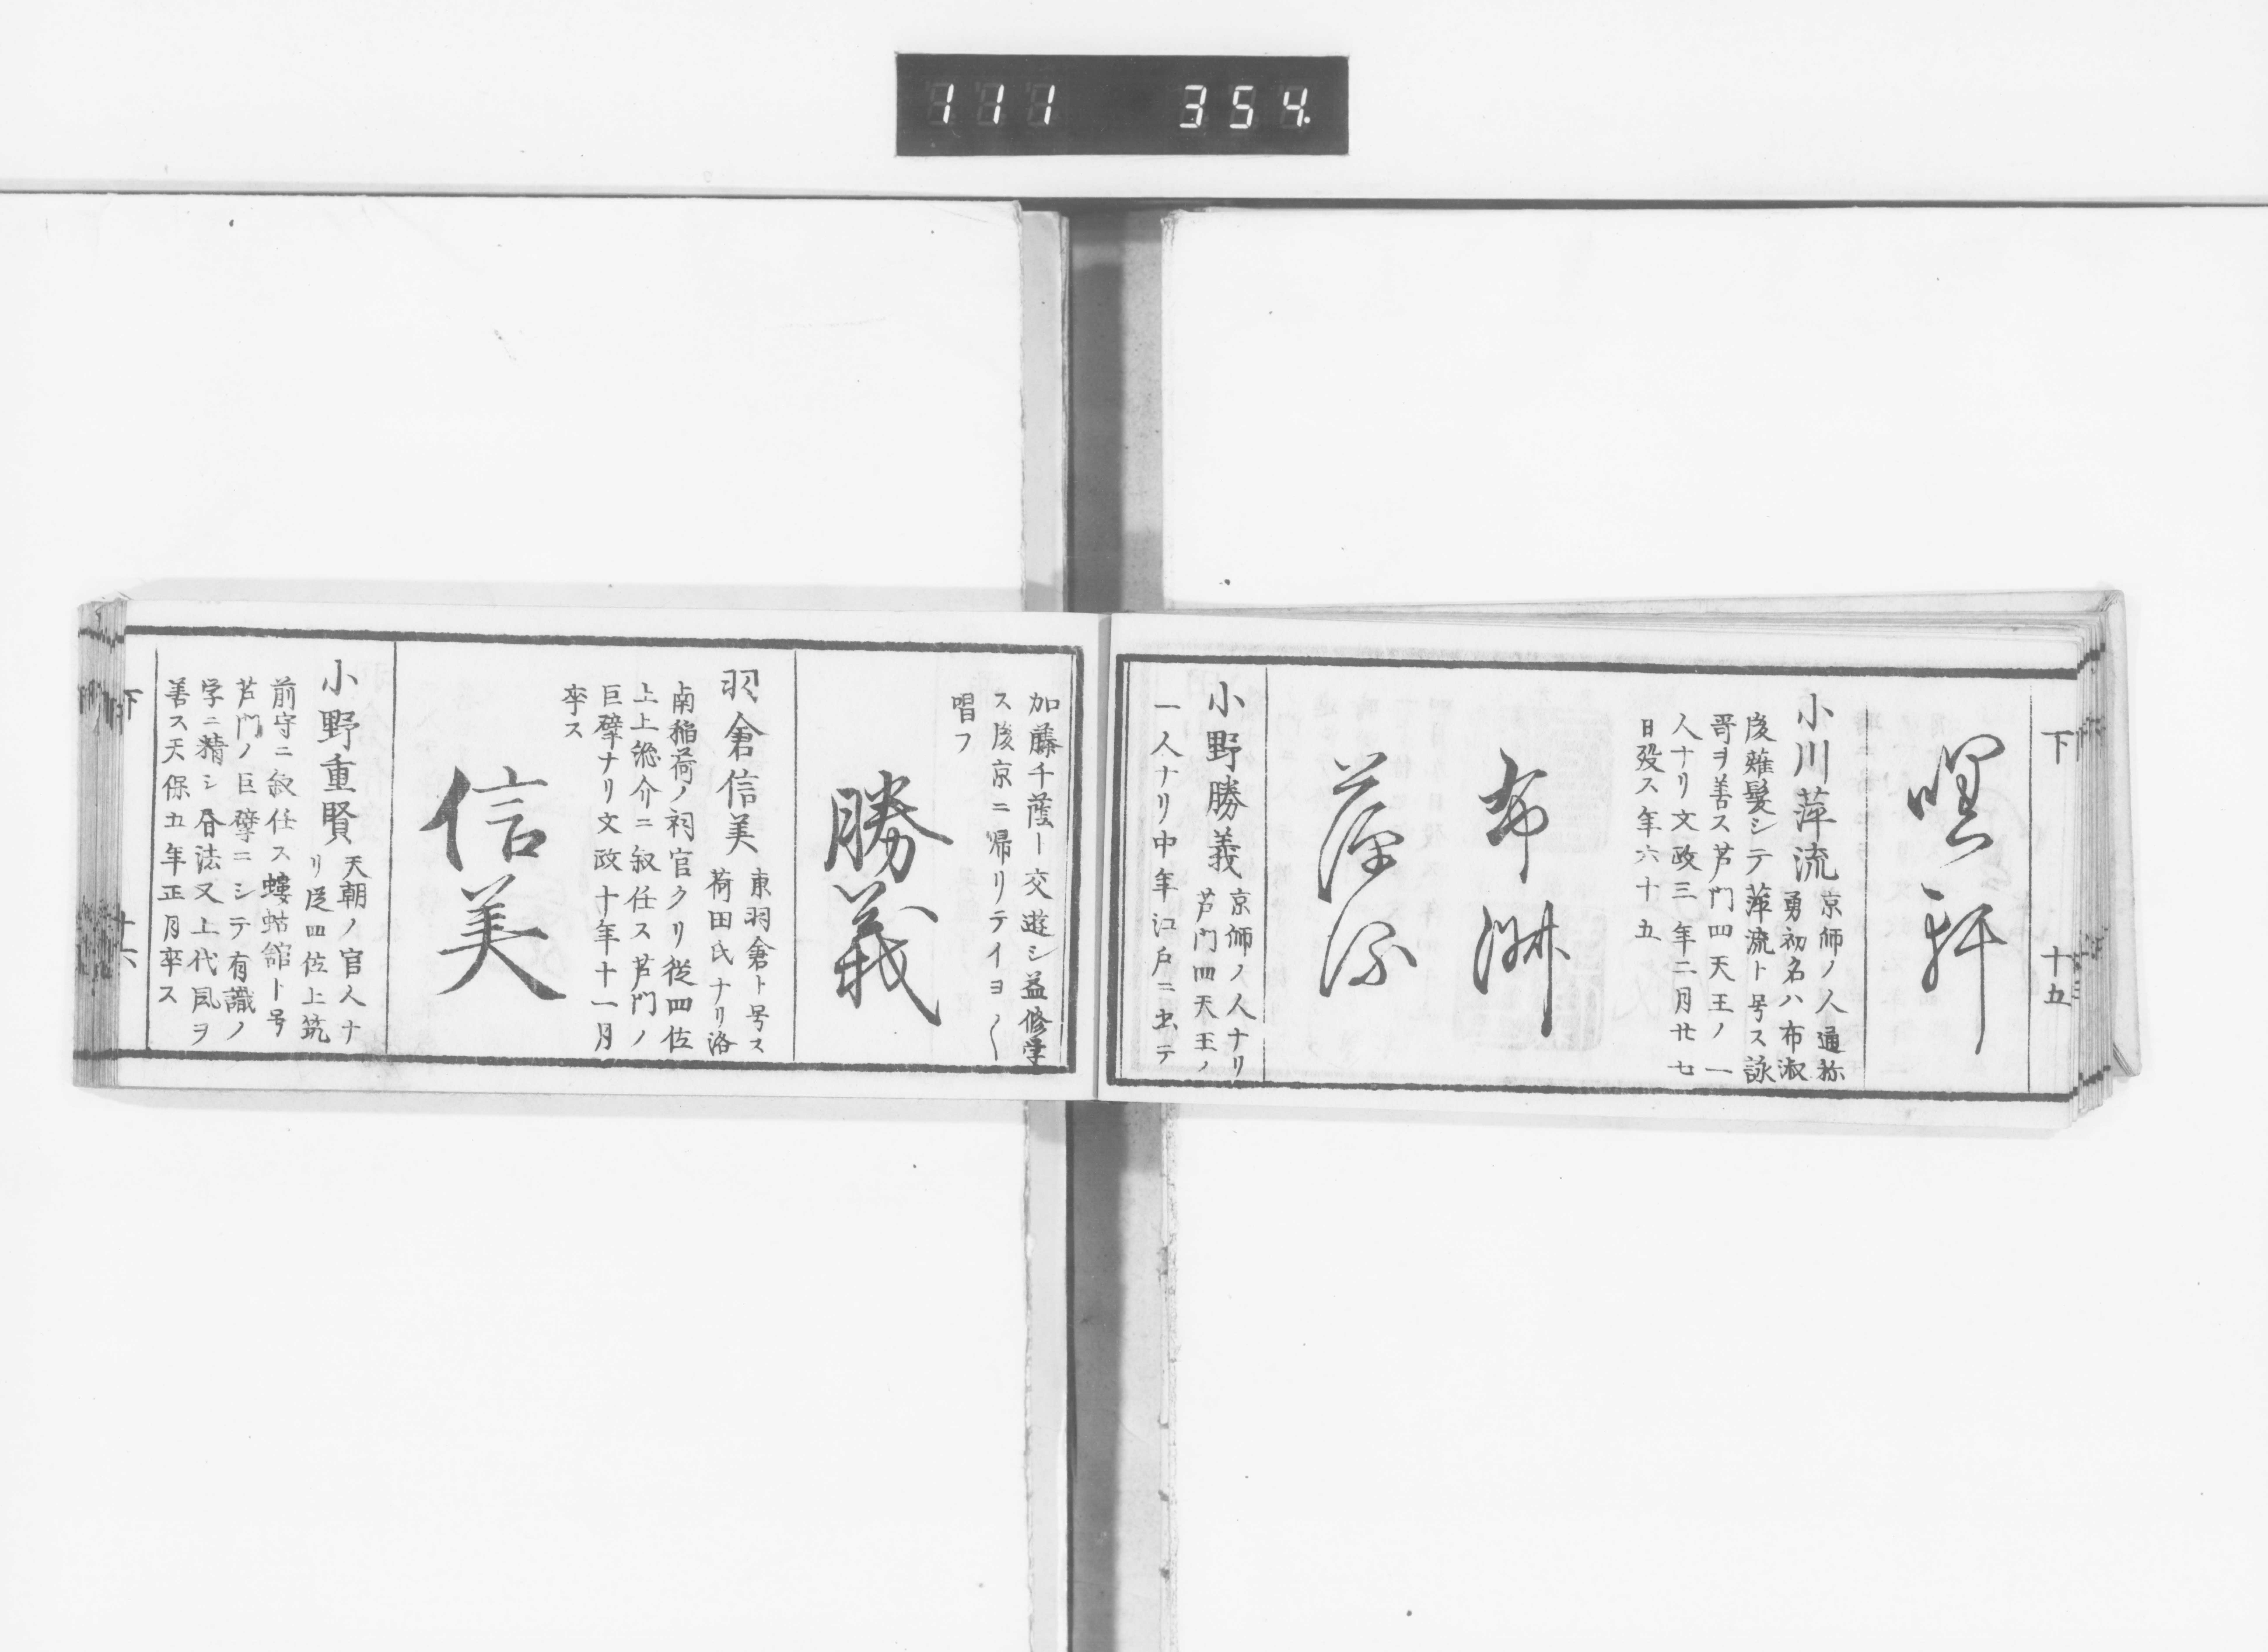 111 354
下 十五
嘿軒
小川萍流 京師ノ人通称
勇初名ハ布淑
後薙髪シテ萍流ト号ス詠
哥ヲ善ス芦門四天王ノ一
人ナリ文政三年二月廿七
日歿ス年六十五
布淑
萍流
小野勝義 京師ノ人ナリ
芦門四天王ノ
一人ナリ中年江戸ニ出テ
加藤千蔭ト交遊シ益修学
ス後京ニ帰リテイヨ〱
唱フ
勝義
羽倉信美 東羽倉ト号ス
荷田氏ナリ洛
南稲荷ノ祠官タリ従四位
上上総介ニ叙任ス芦門ノ
巨擘ナリ文政十年十一月
卒ス
信美
小野重賢 天朝ノ官人ナ
リ従四位上筑
前守ニ叙任ス螻蛄館ト号
芦門ノ巨擘ニシテ有識ノ
学ニ精シ唇法又上代風ヲ
善ス天保五年正月卒ス
下 十六